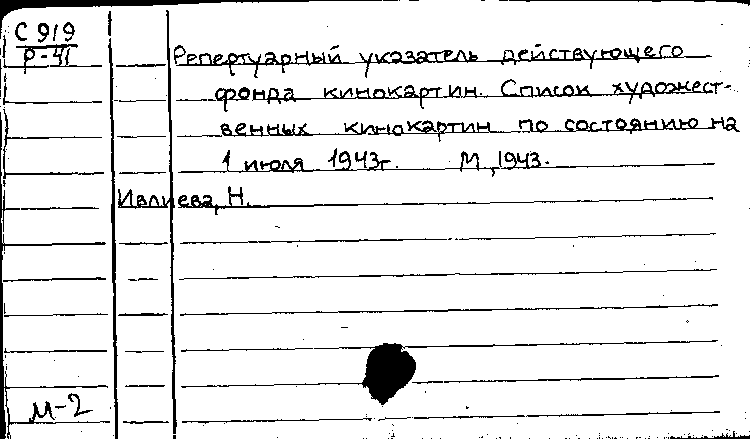 С 919
Р-41
Репертуарный указатель действующего
фонда кинокартин. Список художест-
венных кинокартин по состоянию на
1 июля 1943г. М, 1943.
Ивлиева, Н.
М-2